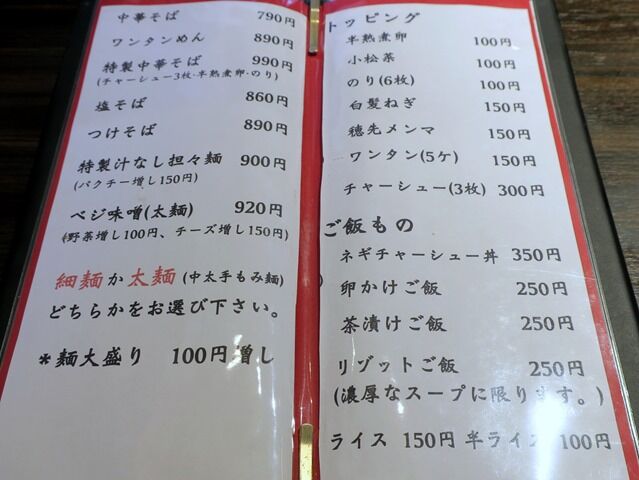 中華そば 790円
ワンタンめん 890円
特製中華そば 990円
(チャーシュー3枚・半熟煮卵・のり)
塩そば 860円
つけそば 890円
特製汁なし担々麺 900円
(パクチー増し150円)
ベジ味噌(太麺) 920円
(野菜増し100円、チーズ増し150円)
細麺か太麺(中太手もみ麺)
どちらかをお選び下さい。
*麺大盛り 100円増し
トッピング
半熟煮卵 100円
小松菜 100円
のり(6枚) 100円
白髪ねぎ 150円
穂先メンマ 150円
ワンタン(5ケ) 150円
チャーシュー(3枚) 300円
ご飯もの
ネギチャーシュー丼 350円
卵かけご飯 250円
茶漬けご飯 250円
リゾットご飯 250円
(濃厚なスープに限ります。)
ライス 150円 半ライス 100円